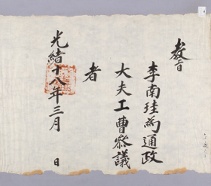 敎旨
李南珪爲通政
大夫工曹參議
者
光緖十八年三月　日